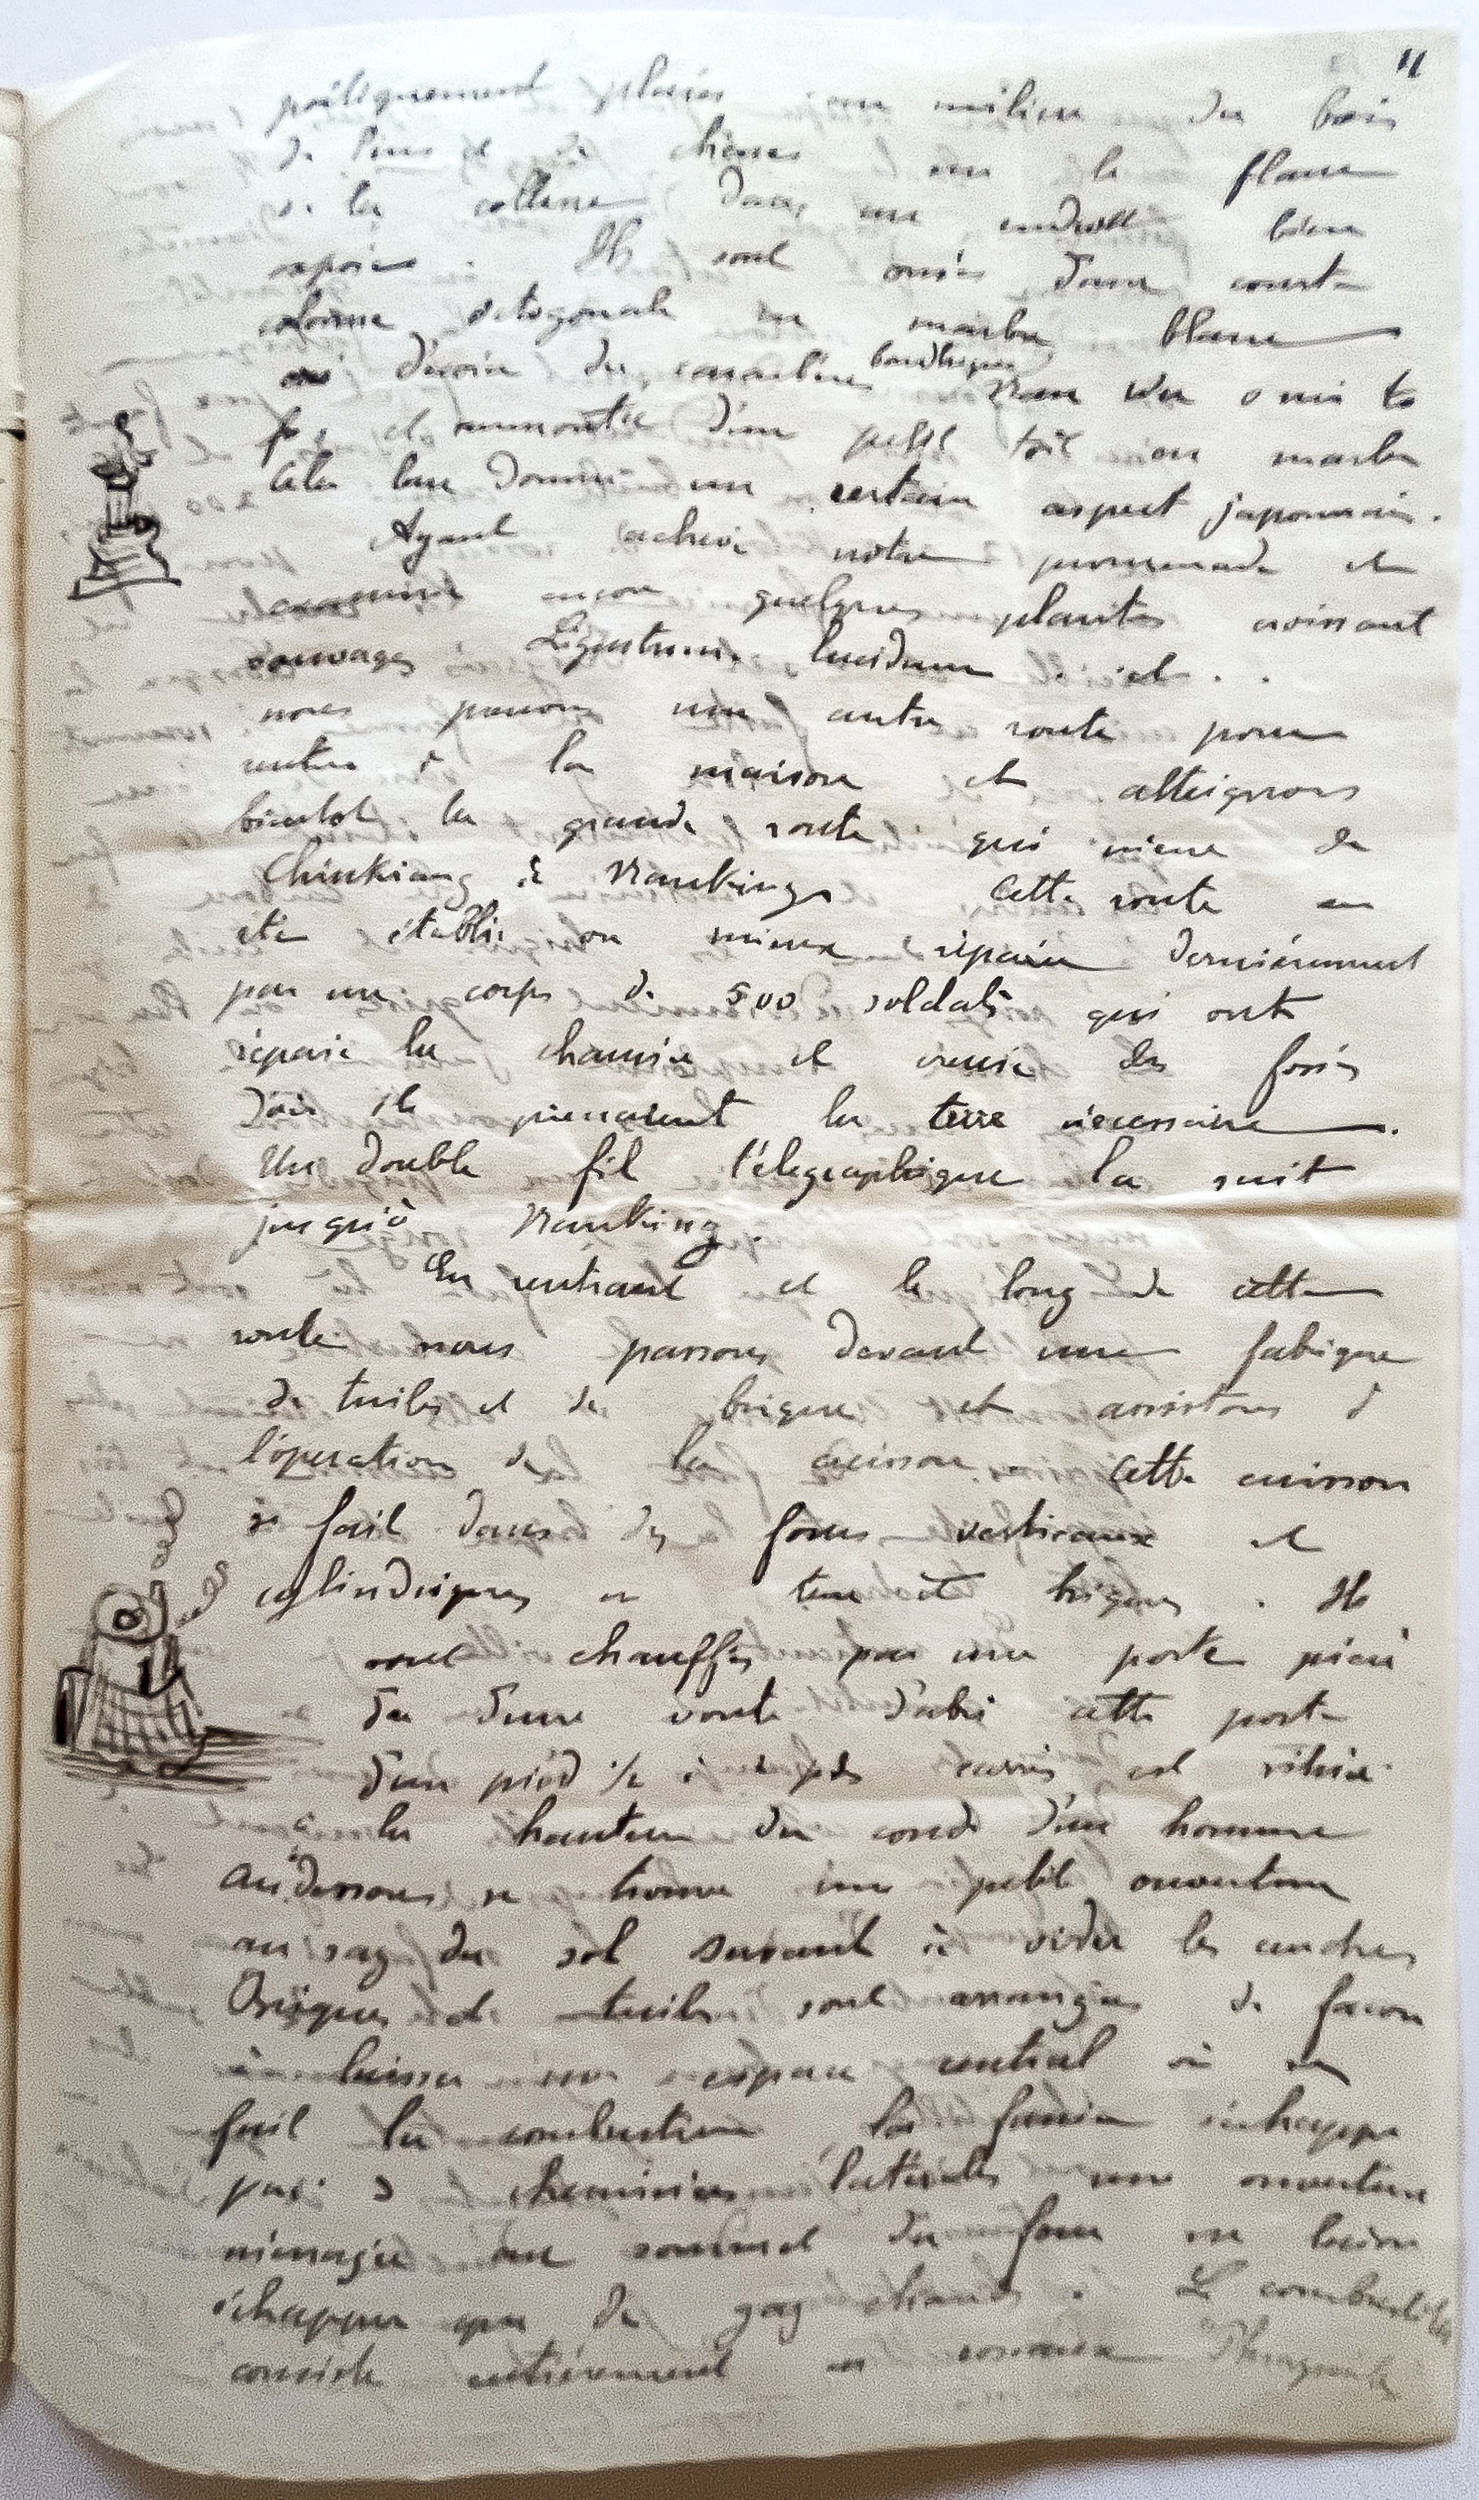 11
poétiquement placés au milieu du bois
de Pins et de chênes sur le flanc
de la colline dans un endroit bien
exposé. Ils sont ornés d'une courte
colonne octogonale en marbre blanc
décorée de caractères bouddhiques Nan Wu o mi to
fo, et surmontée d'un petit toit en marbre
cela leur donne un certain aspect japonnais.
Ayant achevé notre promenade et
examiné encore quelques plantes croissant
sauvages Ligustrum lucidum et . .
nous prenons une autre route pour
rentrer à la maison et atteignons
bientot la grande route qui mene de
Chinkiang à Nanking. Cette route a
été établie ou mieux réparée dernièrement
par un corps de 500 soldats qui ont
réparé le chemin et creusé des fossés
d'où ils prenaient la terre nécessaire.
Un double fil télégraphique la suit
jusqu'à Nanking.
En rentrant et le long de cette
route nous passons devant une fabrique
de tuiles et de briques et assistons à
l'opération de la cuisson. Cette cuisson
se fait dans des fours verticaux et
cylindriques en terre et briques. Ils
sont chauffés par une porte précé
dée d'une voute d'abri cette porte
d'un pied ½ à 2 pds carrés est située
à la hauteur du coude d'un homme
au dessous se trouve une petite ouverture
au rag du sol servant à vider les cendres
Briques et tuiles sont arrangées de facon
à laisser un espace central où se
fait la combustion. La fumée s'échappe
par 2 cheminées latérales une ouverture
ménagée au sommet du four ne laisse
échapper que des gaz chauds. Le combustible
consiste entièrement en roseaux Phragmites